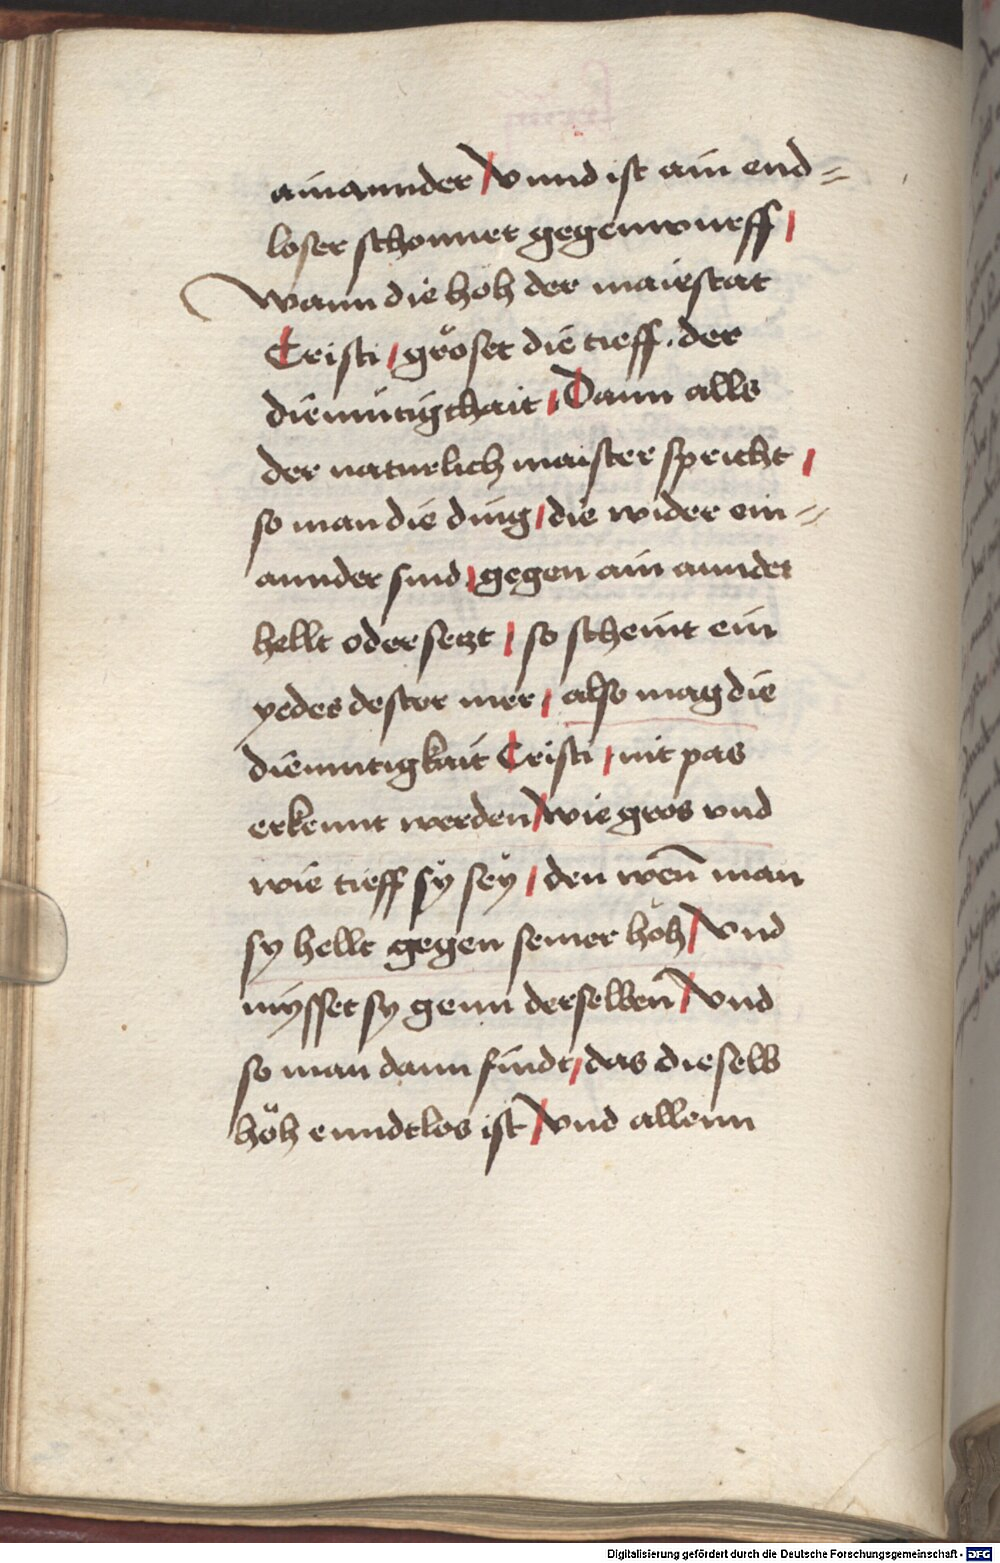 ainannder / vnnd ist ain end=
loser schonner gegenwurff /
Wann die höh der maiestat
Cristi / gröset die tieff . der
diemütigchait / Dann alls
der naturlich maister spricht /
so man die ding / die wider ein=
annder sind / gegen ain annder
hellt oder setzt / so scheint ein
yedes dester mer / also mag die
diemutigkait Cristi / nit pas
erkennt werden / wie gros vnd
wie tieff sÿ seÿ / den wen̄ man
sy hellt gegen seiner höh / vnd
mysset sy genn derselben̄ / vnd
so man dann findt / das dieselb
höh enndtlos ist / vnd allenn
Digitalisierung gefördert durch die Deutsche Forschungsgemeinschaft - DFG